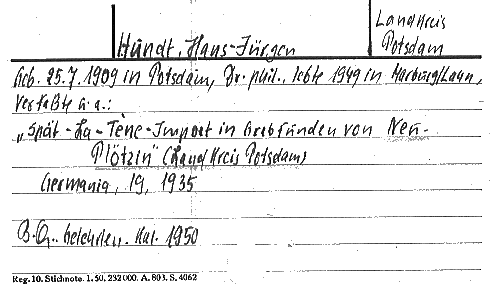 Landkreis
Potsdam
Hundt, Hans-Jürgen
Geb. 25.7.1909 in Potsdam, Dr. phil., lebte 1949 in Marburg/Lahn,
verfaßte u.a.:
„Spät-La-Tène-Import in Grabfunden von Neu-
Plötzin" (Landkreis Potsdam)
Germania, 19, 1935
Gelehrten. Kal. 1950
Reg. 10. Stichnote. 1. 50. 232000. A. 803. S. 4062